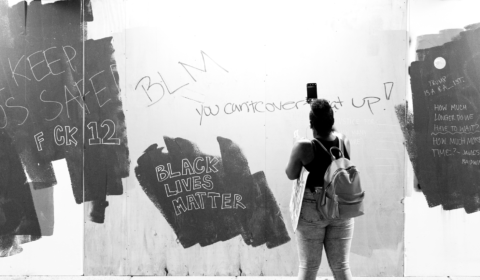 KEEP
US SAFE!
F CK 12
BLM
you can't cover it up!
BLACK
LIVES
MATTER
HOW MUCH
LONGER DO WE
HAVE TO WAIT?
HOW MUCH MORE
TIME?